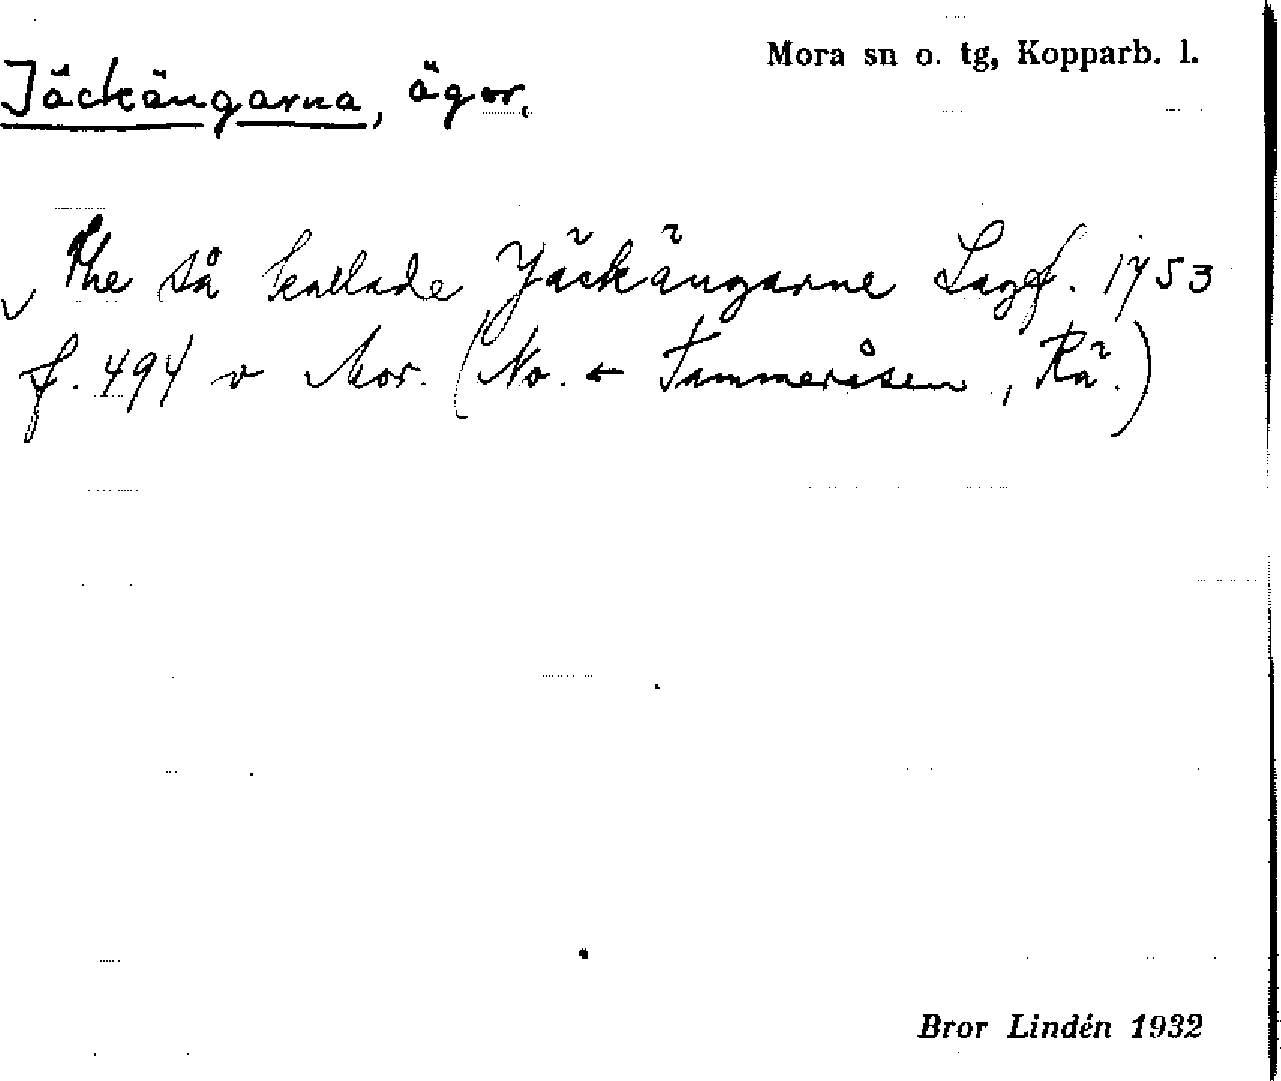 Mora sn o. tg, Kopparb. l.
Jäckängarna, ägor.
The så kallade Jäckängarne Lagf. 1753
f. 494 v Mor. (No. ← Tammeråsen, Rä.)
Bror Lindén 1932